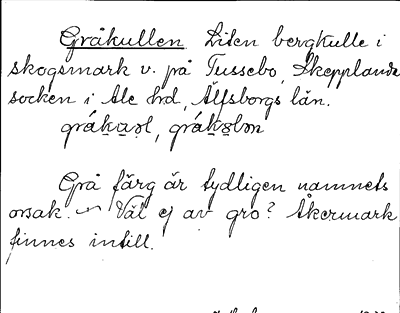 Gråkullen Liten bergkulle i
skogsmark v. på Tussebo, Skepplanda
socken i Ale hd, Älfsborgs län.
Grå färg är tydligen namnets
orsak. Väl ej av gro? Åkermark
finnes intill.